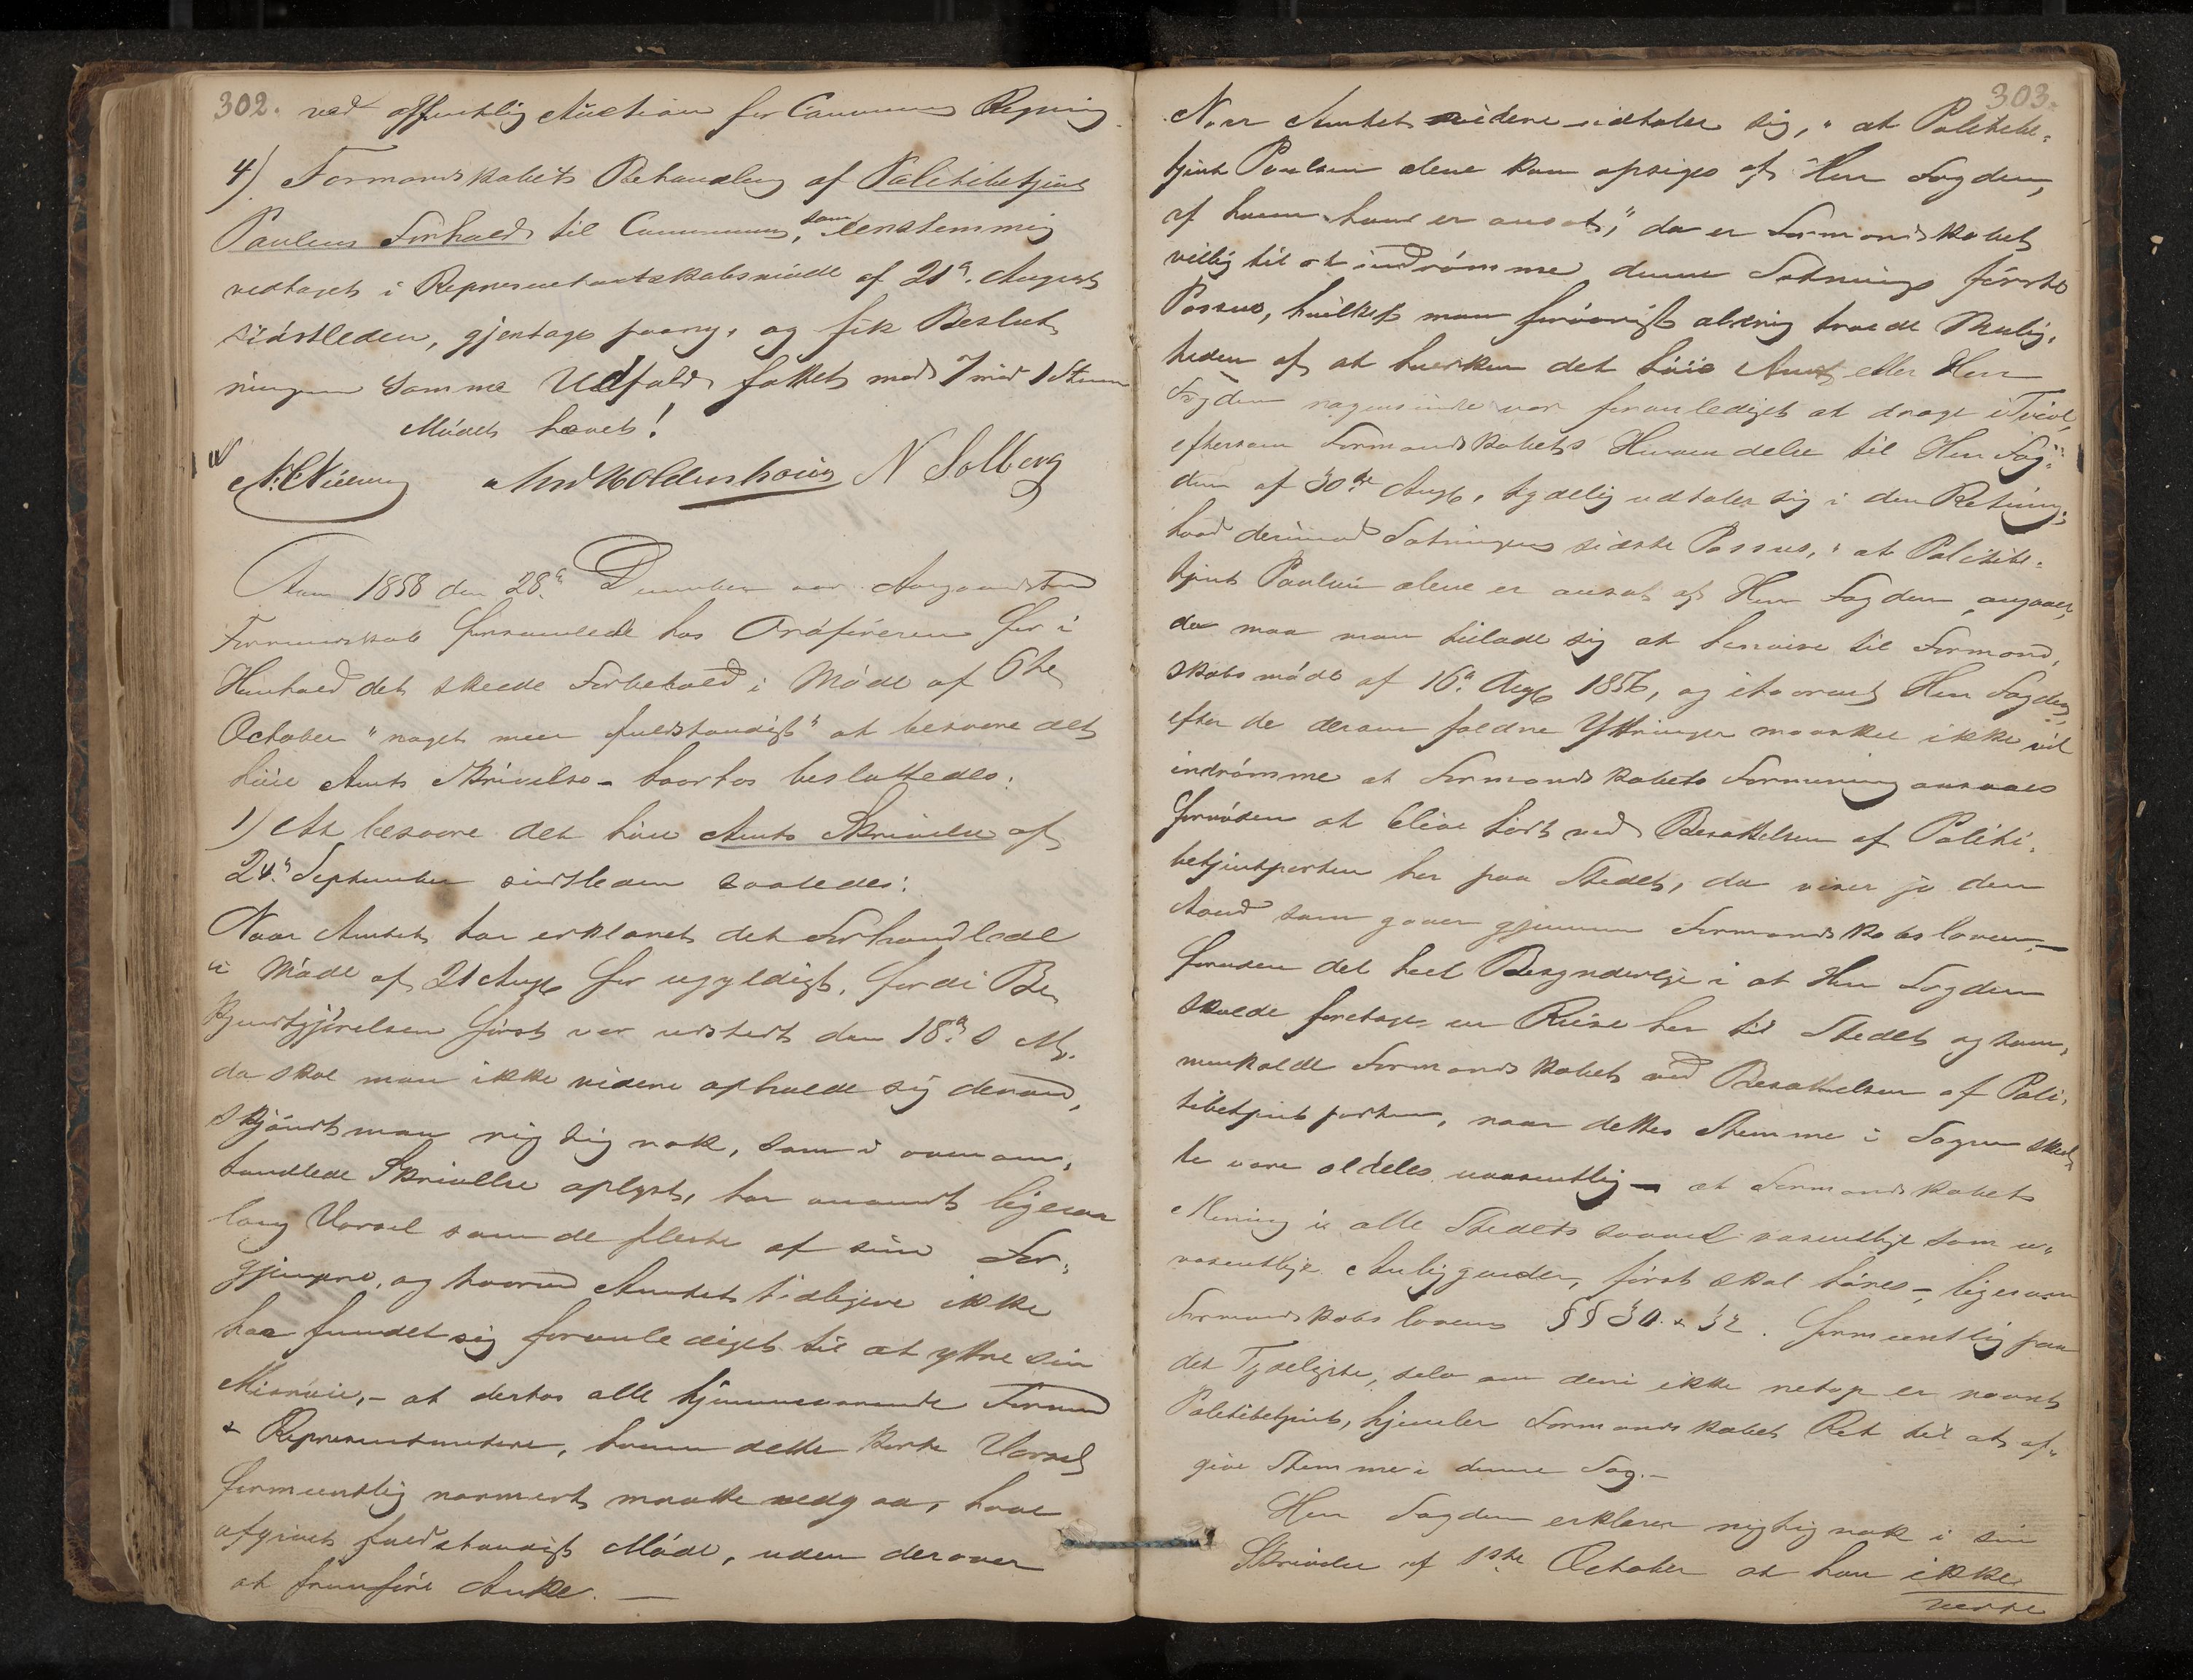 302.
ved offentlig Auction for Communens Regning.
4) Formandskabets Behandling af Politibetjent
Paulsens Forhold til Communen, som eenstemmig
vedtaget i Repræsentantskabsmøde af 21de August
sidstleden, gjentages paany, og fik Beslut„
ningen samme Udfald, fattet med 7 mod 1 Stemme
Mødet hævet!
N. Solberg
Aar 1858 den 28de December var
Formandskab forsamlede hos Ordføreren for i
Henhold det skeede Forbehold i Møde af 6te
October "noget meer fuldstændigt" at besvare det
høie Amts Skrivelse – hvorhos besluttedes:
1) At besvare det høie Amts Skrivelse af
24de September sidstleden saaledes:
Naar Amtet har erklæret det Forhandlede
i Møde af 21 Augt for ugyldigt, fordi Be„
kjendtgjørelsen først var udstedt den 18de s. M.
da skal man ikke videre opholde sig derved,
skjøndt man rigtig nok, som i ovenom„
handlede Skrivelse oplyst, har anvendt ligesaa
lang Varsel som de fleste af sine For„
gjængere, og hvorved Amtet tidligere ikke
har fundet sig foranlediget til at yttre sin
Misnøie, – at derhos alle hjemmeværende Formænd
& Repræsentantere, hvem dette korte Varsel
formeentlig nærmest maatte vedgaa, have
afgivet fuldstændigt Møde, uden derover
at fremføre Anke. —
303.
Naar Amtet videre udtaler sig, "at Politibe„
tjent Paulsen alene kan opsiges af Herr Fogden,
af hvem han er ansat," da er Formandskabet
villig til at indrømme denne Sætnings første
Passus, hvilket man forøvrigt aldrig troede Mulig„
heden af at hverken det høie Amt eller Herr
Fogden nogensinde var foranlediget at drage i Tvivl,
eftersom Formandskabets Henvendelse til Herr Fog„
den af 30te Augt, tydelig udtaler sig i den Retning;
hvad derimod Sætningens sidste Passus, "at Politibe„
tjent Paulsen alene er ansat af Herr Fogden, angaaer,
da maa man tillade sig at henvise til Formand„
skabsmøde af 16de Augt 1856, og ihvorvel Herr Fogden,
efter de derom faldne Yttringer maaskee ikke vil
indrømme at Formandskabets Formening ansaaes
fornøden at blive hørt ved Besættelsen af Politi„
betjentposten her paa Stedet, da viser jo den
Aand som gaaer gjennem Formandskabsloven, —
foruden det heel Besynderlige i at Herr Fogden
skulde foretage en Reise her til Stedet og sam„
menkalde Formandskabet ved Besættelsen af Poli„
tibetjentposten, naar dettes Stemme i Sagen skul„
de være aldeles uvæsentlig — at Formandskabets
Mening i alle Stedets saavel væsentlige som u„
væsentlige Anliggender, først skal høres –, ligesom
Formandskabslovens §§ 30 & 32. formeentlig paa
det Tydeligste, selv om deri ikke netop er nævnt
Politibetjent, hjemler Formandskabet Ret til at af„
give Stemme i denne Sag. –
Herr Fogden erklærer rigtig nok i sin
Skrivelse af 1ste October at han ikke